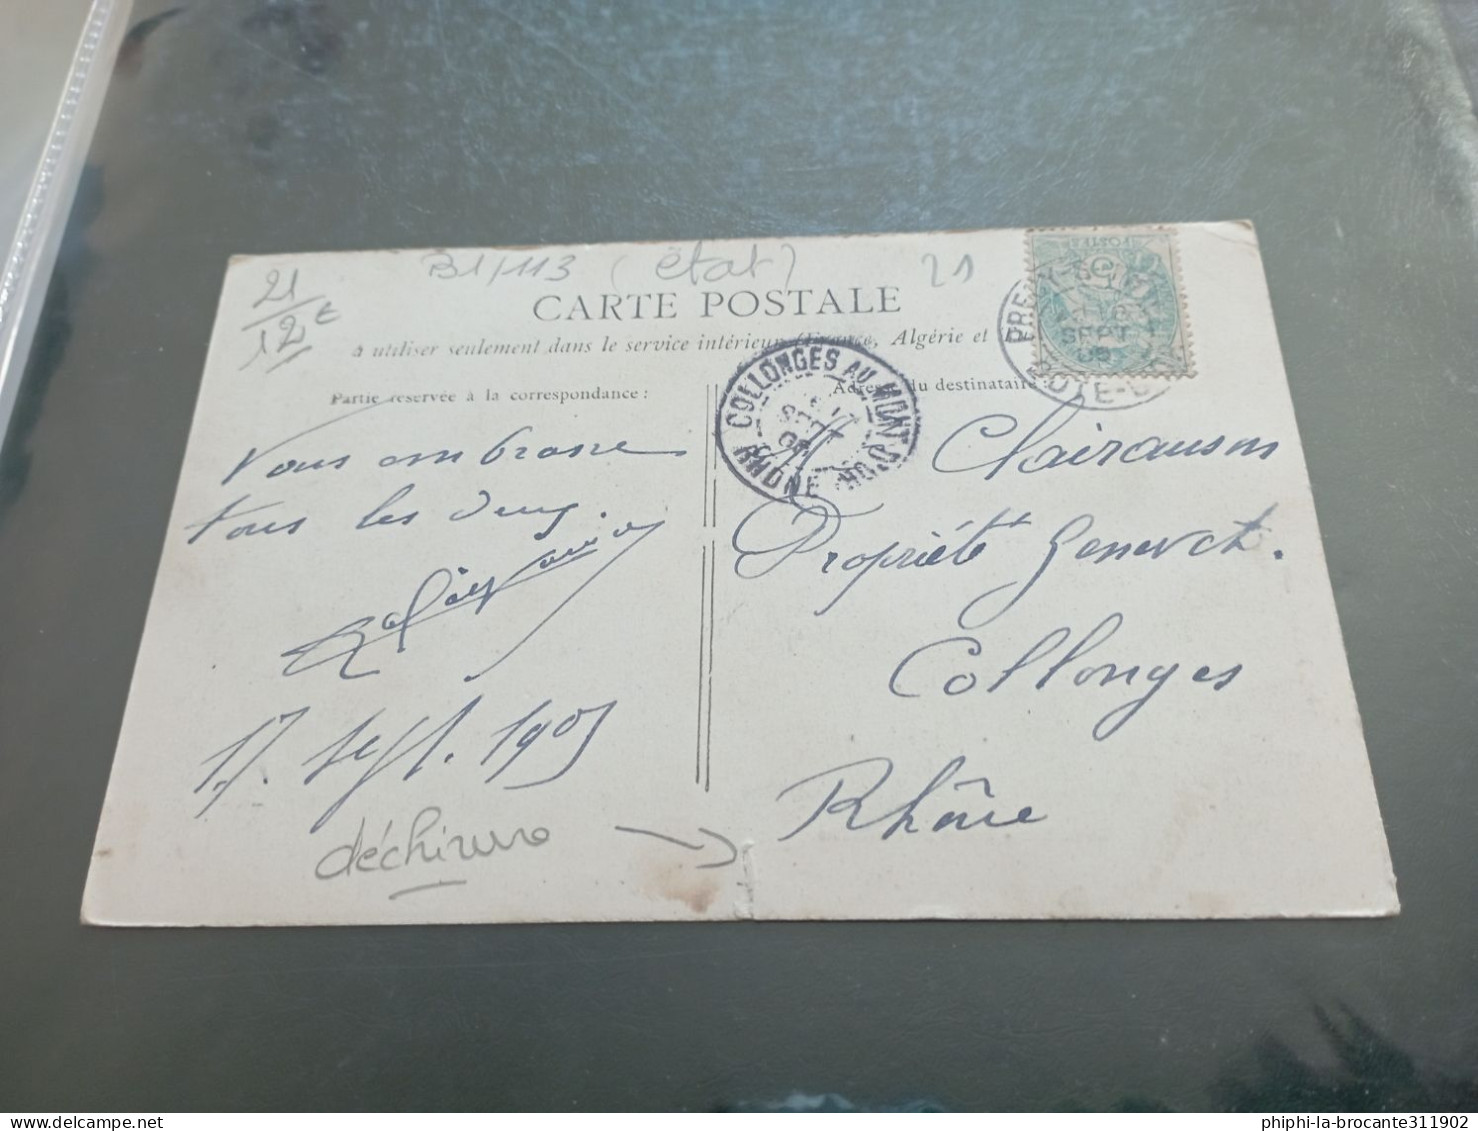 21
12 €
B1/113 (état)
21
CARTE POSTALE
à utiliser seulement dans le service intérieur (France, Algérie et
Partie réservée à la correspondance :
Adresse du destinataire
COLLONGES AU MONT D'OR
SEPT
05
RHONE
POSTES
SEPT
05
COTE-D'OR
Vous embrasse
tous les deux.
17. Sept. 1905
déchirure
M Clairanson
Propriété Genevet.
Collonges
Rhône
phiphi-la-brocante311902